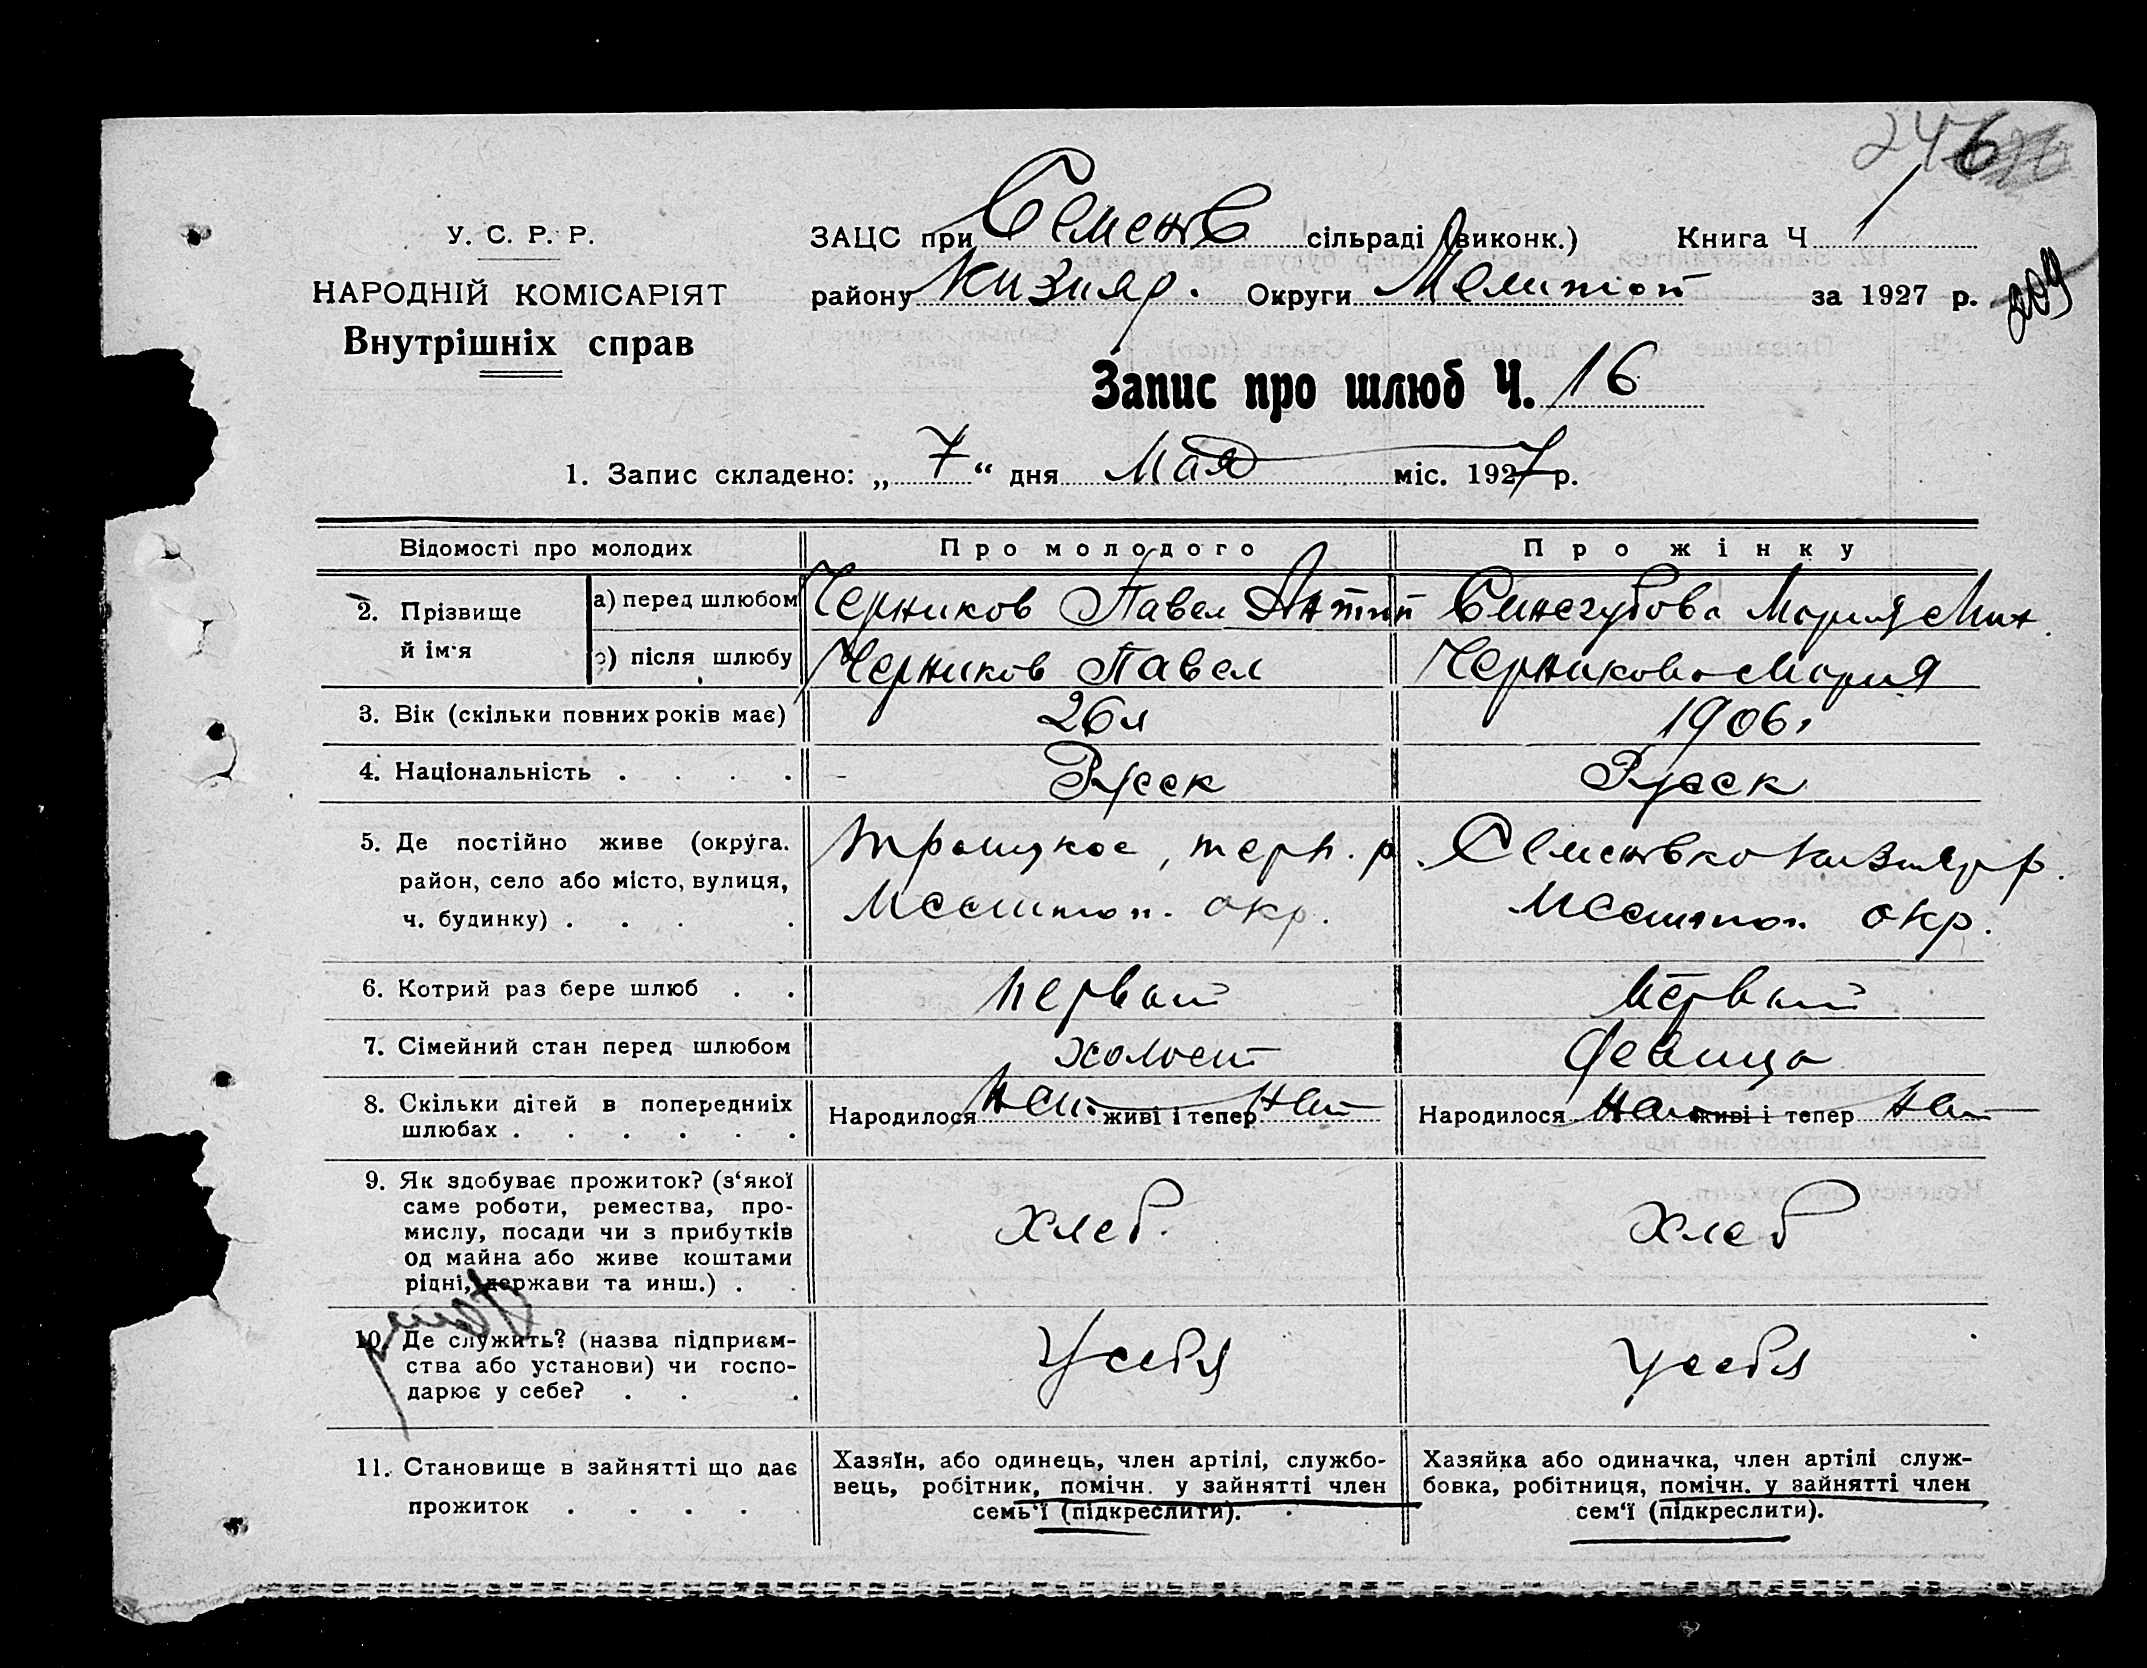 246
У. С. Р. Р.
НАРОДНІЙ КОМІСАРІЯТ
Внутрішніх справ
ЗАЦС при Семенов сільраді (виконк.) Книга Ч 1
району Кизияр. Округи Мелитоп за 1927 р.
209
Запис про шлюб Ч. 16
1. Запис складено: „ 7 “ дня Мая міс. 1927 р.
Відомості про молодих Про молодого Про жінку
2. Прізвище й ім'я
а) перед шлюбом Черников Павел Антип Синегубова Мария Мих.
в) після шлюбу Черников Павел Черникова Мария
3. Вік (скільки повних років має) 26 л 1906.
4. Національність . . . . Русск Русск
5. Де постійно живе (округа. район, село або місто, вулиця, ч. будинку) . . . .
Троицкое, терп. р
Мелитоп. окр.
Семеновка Кизияр р.
Мелитоп. окр.
6. Котрий раз бере шлюб . . Первый Первый
7. Сімейний стан перед шлюбом холост девица
8. Скільки дітей в попередниіх шлюбах . . . . . .
Народилося нет живі і тепер нет
Народилося нет живі і тепер нет
9. Як здобуває прожиток? (з‘якої
саме роботи, ремества, про-
мислу, посади чи з прибутків
од майна або живе коштами
рідні, держави та инш.) . .
Хлеб. Хлеб
10. Де служить? (назва підприєм-
ства або установи) чи госпо-
дарює у себе? . . .
У себя у себя
11. Становище в зайнятті що дає
прожиток . . . . .
Хазяїн, або одинець, член артілі, службо-
вець, робітник, помічн. у зайнятті член
семь‘ї (підкреслити).
Хазяйка або одиначка, член артілі служ-
бовка, робітниця, помічн. у зайнятті член
сем‘ї (підкреслити).